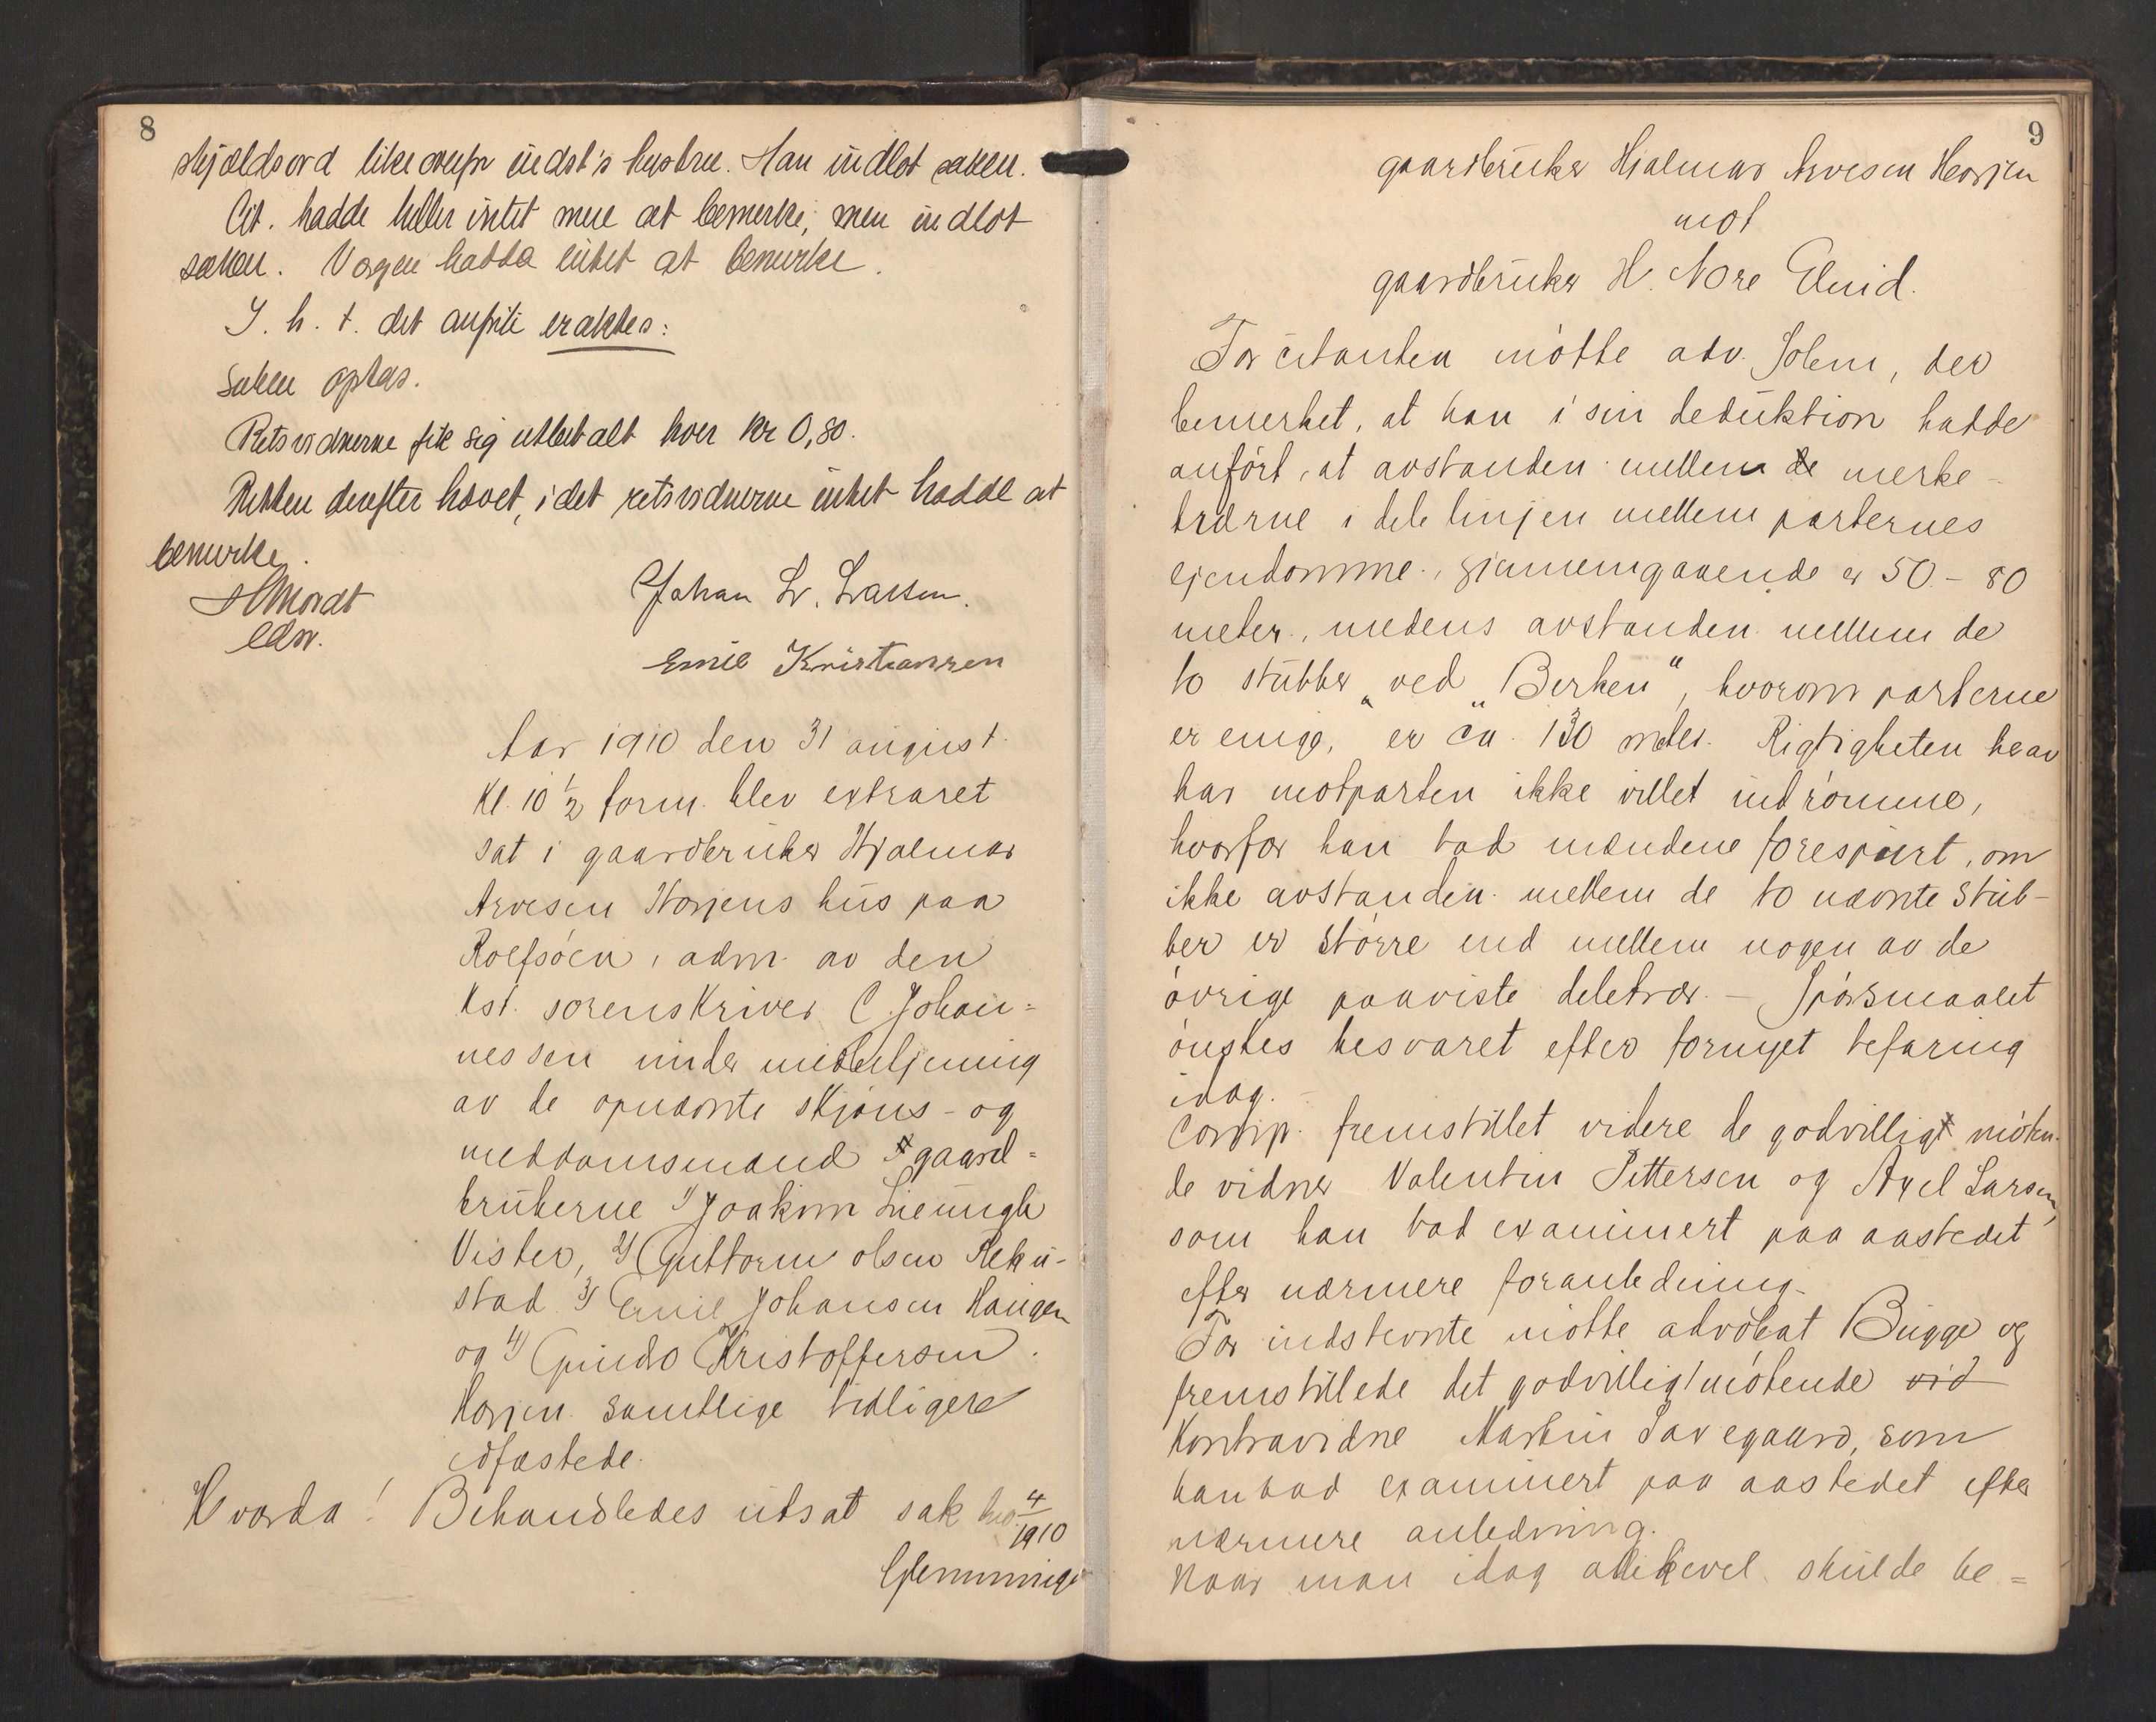 8
skjældsord likeoverfor indst's hustru. Han indlot saken.
Cit. hadde heller intet mere at bemerke, men indlot
saken. Vorgen hadde intet at bemerke.
I. h. t. det anførte eraktes:
Saken optas.
Retsvidnerne fik sig utbetalt hver kr 0,80.
Retten derefter hævet, idet retsvidnerne intet hadde at
bemerke.
edsv.
Johan Lr. Larsen.
Emil Kristiansen
Aar 1910 den 31 august
Kl. 10 1/2 form. blev extraret
sat i gaardbruker Hjalmar
Arvesen Horjens hus paa
Rolfsöen, adm. av den
kst. sorenskriver C. Johan=
nessen under medbetjening
av de opnævnte skjöns- og
meddomsmænd gaard=
brukerne 1) Joakim Lieungh
Vister, 2) Guttorm olsen Reku-
stad 3) Emil Johansen Haugen
og 4) Guido Kristoffersen
Horjen samtlige tidligere
edfæstede.
Hvorda! Behandledes utsat sak no 4/1910
Glemminge
9
gaardbruker Hjalmar Arvesen Horjen
mot
gaardbruker H. Nore Elmid.
For citanten mötte adv. Solem, der
bemerket, at han i sin deduktion hadde
anført, at avstanden mellem de merke-
trærne i delelinjen mellem parternes
ejendomme, gjennemgaaende er 50 - 80
meter, medens avstanden mellem de
to stubber „ved „Berken“, hvorom parterne
er enige, er ca. 130 meter. Rigtigheten herav
har motparten ikke villet indrömme,
hvorfor han bad mændene forespurt, om
ikke avstanden mellem de to nævnte stub-
ber er större end mellem nogen av de
övrige paaviste deletrær. — Spörsmaalet
önskes besvaret efter fornyet befaring
idag.
Comp. fremstillet videre de godvilligt möten-
de vidner Valentin Pettersen og Axel Larsen,
som han bad examinert paa aastedet
efter nærmere foranledning.
For indstevnte mötte advokat Bugge og
fremstillede det godvilligt mötende vid
Kontravidne Martin Navegaard, som
han bad examinert paa aastedet efter
nærmere anledning.
Naar man idag allikevel skulde be=